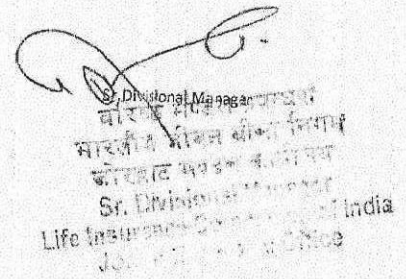 Sr. Divisional Manager
वरिष्ठ मण्डल
भारतीय जीवन बीमा निगम
जोरहाट मण्डल कार्यालय
Sr. Divisional Manager
Life Insurance Corporation of India
Office